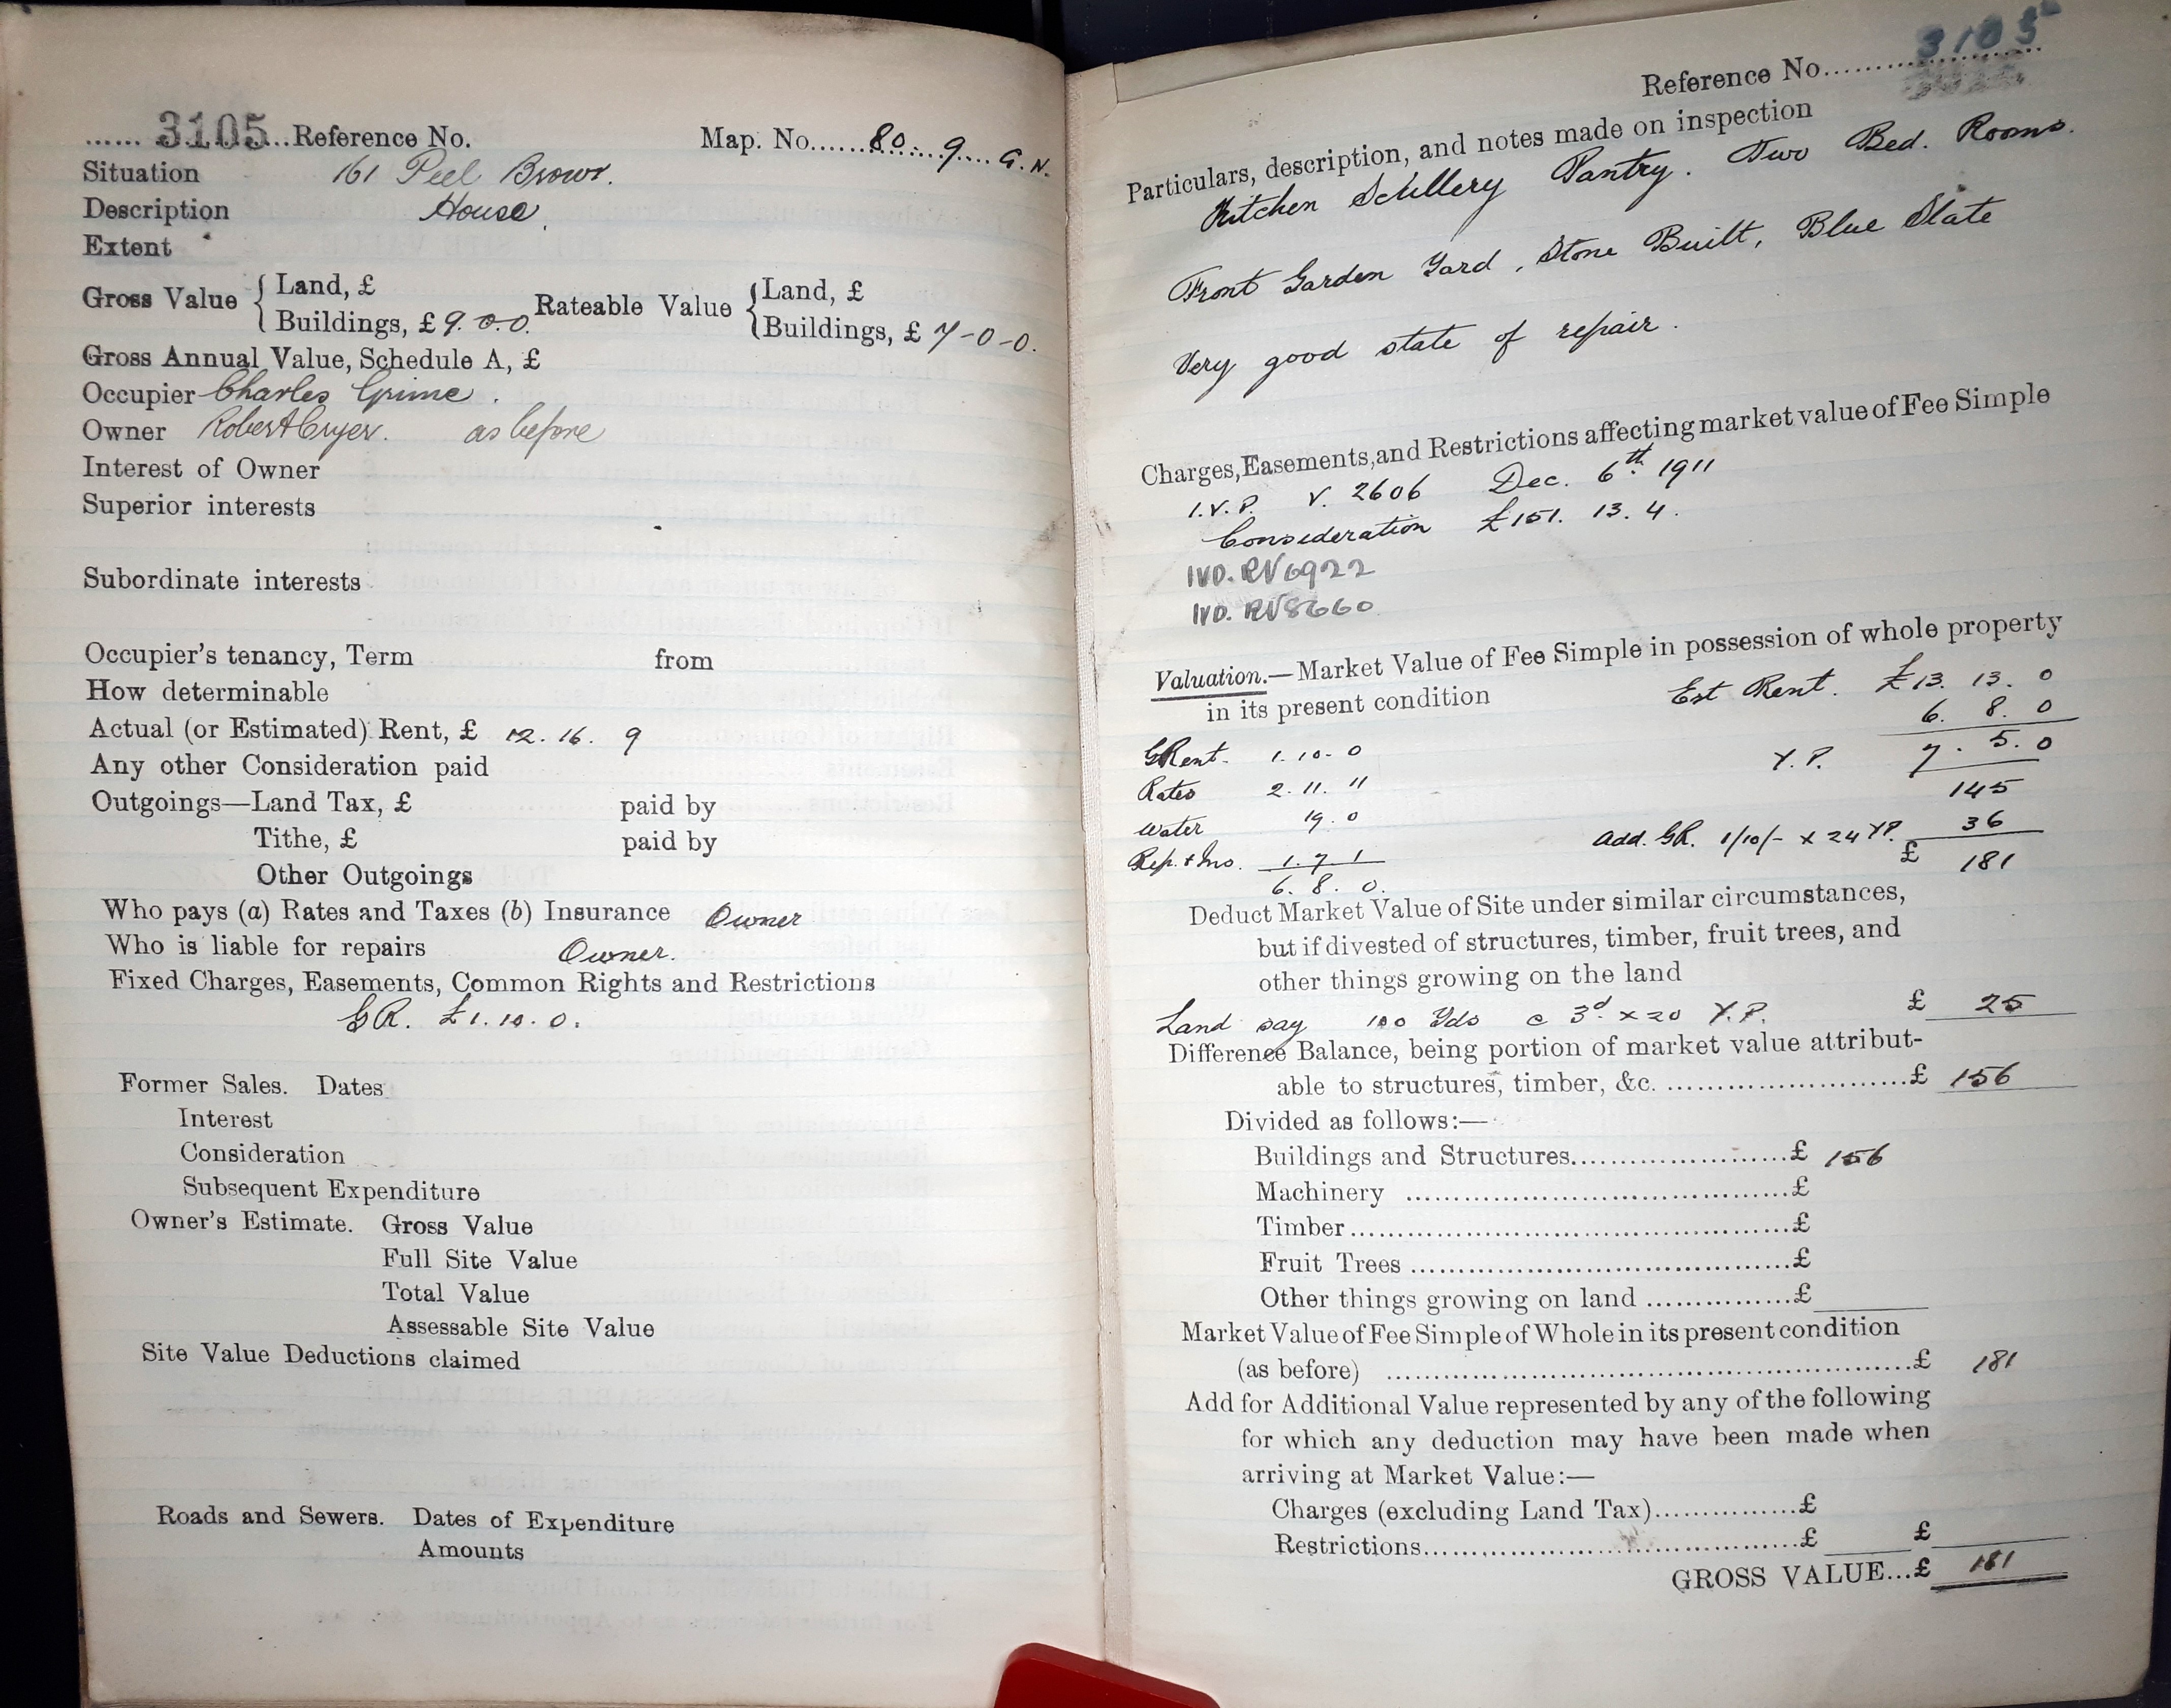 ...... 3105...Reference No. Map. No.......80....9.... G. N.
Situation 161 Peel Brow.
Description House.
Extent
Gross Value { Land, £ Rateable Value { Land, £
Buildings, £ 9. 0. 0. Buildings, £ 7-0-0.
Gross Annual Value, Schedule A, £
Occupier Charles Grime.
Owner Robert Cryer. as before
Interest of Owner
Superior interests
Subordinate interests
Occupier's tenancy, Term from
How determinable
Actual (or Estimated) Rent, £ 12. 16. 9
Any other Consideration paid
Outgoings—Land Tax, £ paid by
Tithe, £ paid by
Other Outgoings
Who pays (a) Rates and Taxes (b) Insurance Owner
Who is liable for repairs Owner.
Fixed Charges, Easements, Common Rights and Restrictions
GR. £1. 10. 0.
Former Sales. Dates
Interest
Consideration
Subsequent Expenditure
Owner's Estimate. Gross Value
Full Site Value
Total Value
Assessable Site Value
Site Value Deductions claimed
Roads and Sewers. Dates of Expenditure
Amounts
Reference No. 3105
Particulars, description, and notes made on inspection
Kitchen Scullery Pantry. Two Bed. Rooms.
Front Garden Yard, Stone Built, Blue Slate
Very good state of repair.
Charges, Easements, and Restrictions affecting market value of Fee Simple
I.V.P. V. 2606 Dec. 6th 1911
Consideration £151. 13. 4.
IVD. RV6922
IVD. RV8660
Valuation.—Market Value of Fee Simple in possession of whole property
in its present condition Est Rent. £13. 13. 0
6. 8. 0
GRent. 1. 10. 0 Y.P. 7. 5. 0
Rates 2. 11. 11 145
Water 19. 0 Add. GR. 1/10/- x 24 YP. 36
Rep. + Ins. 1. 7. 1 £ 181
6. 8. 0.
Deduct Market Value of Site under similar circumstances,
but if divested of structures, timber, fruit trees, and
other things growing on the land
Land say 100 Yds @ 3d. x 20 Y.P. £ 25
Difference Balance, being portion of market value attribut-
able to structures, timber, &c. ..............................£ 156
Divided as follows:—
Buildings and Structures.......................£ 156
Machinery .........................................£
Timber..............................................£
Fruit Trees ........................................£
Other things growing on land ................£
Market Value of Fee Simple of Whole in its present condition
(as before) ..................................................£ 181
Add for Additional Value represented by any of the following
for which any deduction may have been made when
arriving at Market Value:—
Charges (excluding Land Tax)...............£
Restrictions........................................£ £
GROSS VALUE...£ 181